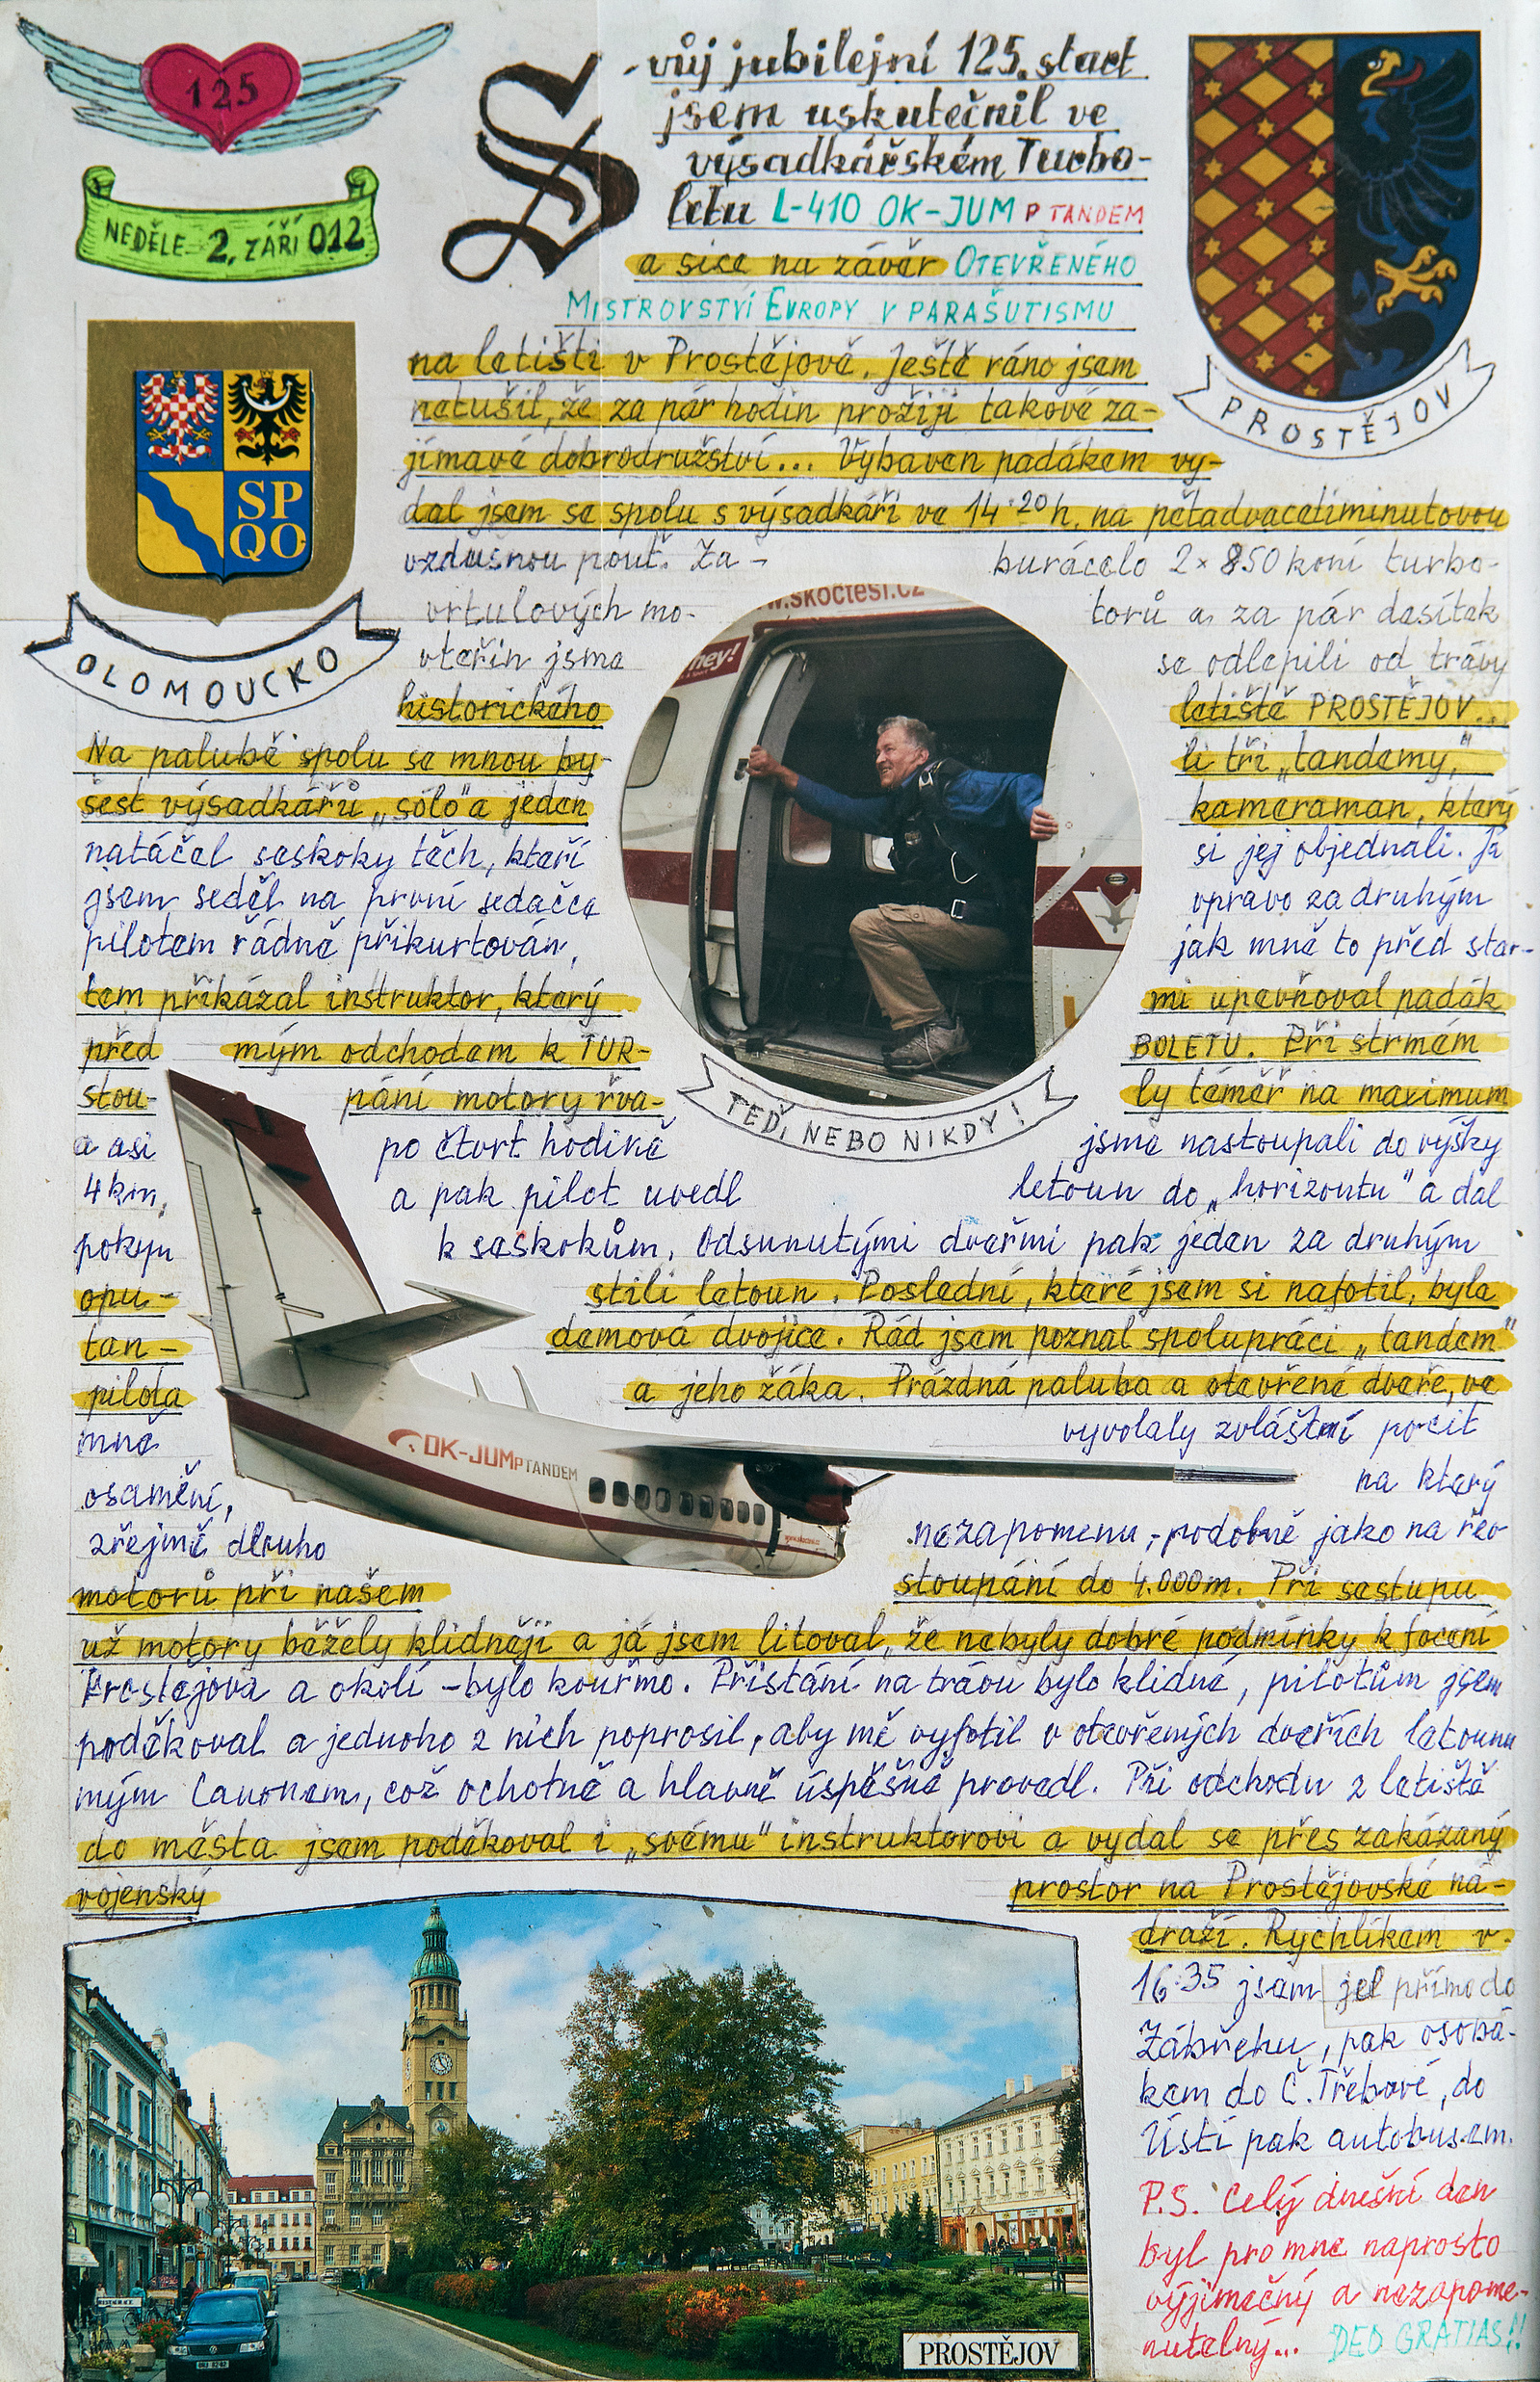 125
NEDĚLE 2. ZÁŘÍ 012
S-vůj jubilejní 125. start
jsem uskutečnil ve
výsadkářském Turbo-
letu L-410 OK-JUM P TANDEM
a sice na závěr OTEVŘENÉHO
MISTROVSTVÍ EVROPY V PARAŠUTISMU
PROSTĚJOV
SP
QO
OLOMOUCKO
na letišti v Prostějově. Ještě ráno jsem
netušil, že za pár hodin prožiji takové za-
jímavé dobrodružství... Vybaven padákem vy-
dal jsem se spolu s výsadkáři ve 14·20 h. na pětadvacetiminutovou
vzdušnou pouť. Za- burácelo 2×850 koní turbo-
vrtulových mo- torů a za pár desítek
vteřin jsme se odlepili od trávy
historického letiště PROSTĚJOV...
Na palubě spolu se mnou by- li tři „tandemy,"
šest výsadkářů „sólo" a jeden kameraman, který
natáčel seskoky těch, kteří si jej objednali. Já
jsem seděl na první sedačce vpravo za druhým
pilotem řádně přikurtován, jak mně to před star-
tem přikázal instruktor, který mi upevňoval padák
před mým odchodem k TUR- BOLETU. Při strmém
stou- pání motory řva- ly téměř na maximum
a asi po čtvrt hodině jsme nastoupali do výšky
4 km, a pak pilot uvedl letoun do „horizontu" a dal
pokyn k seskokům. Odsunutými dveřmi pak jeden za druhým
opu- stili letoun. Poslední, které jsem si nafotil, byla
tan- demová dvojice. Rád jsem poznal spolupráci „tandem"
pilota a jeho žáka. Prázdná paluba a otevřené dveře, ve
mne vyvolaly zvláštní pocit
osamění, na který
zřejmě dlouho nezapomenu, - podobně jako na řev
motorů při našem stoupání do 4.000m. Při sestupu
už motory běžely klidněji a já jsem litoval, že nebyly dobré podmínky k focení
Prostějova a okolí - bylo kouřmo. Přistání na trávu bylo klidné, pilotům jsem
poděkoval a jednoho z nich poprosil, aby mě vyfotil v otevřených dveřích letounu
mým Canonem, což ochotně a hlavně úspěšně provedl. Při odchodu z letiště
do města jsem poděkoval i „svému" instruktorovi a vydal se přes zakázaný
vojenský prostor na Prostějovské ná-
draží. Rychlíkem v
16·35 jsem jel přímo do
Zábřehu, pak osobá-
kem do Č. Třebové, do
Ústí pak autobusem.
P.S. Celý dnešní den
byl pro mne naprosto
výjimečný a nezapome-
nutelný... DEO GRATIAS!!
www.skoctesi.cz
hey!
TEĎ, NEBO NIKDY!
OK-JUMPTANDEM
PROSTĚJOV